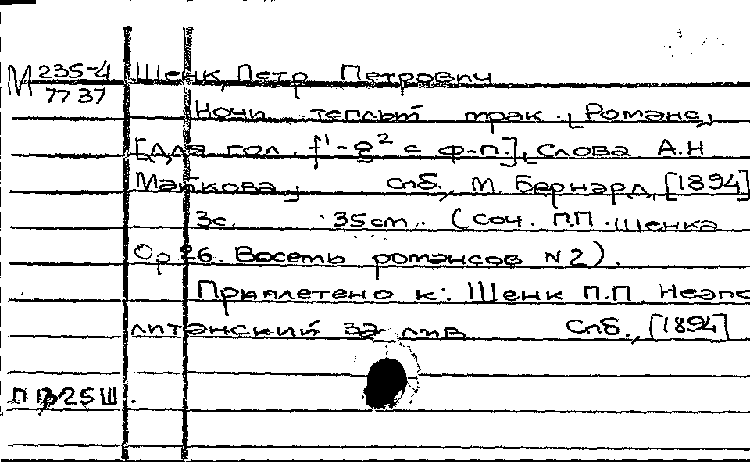 М 235-4 Шенк, Петр Петрович
77 37
Ночи теплый мрак. [Романс,
[Для гол. f¹-g² с ф-п.], Слова А.Н
Майкова, Спб., М. Бернард, [1894]
3с. 35см. (Соч. П.П. Шенка
Op 26. Восемь романсов N2).
Приплетено к: Шенк П.П. Неапо
литанский залив Спб., [1894]
П 1325Ш.